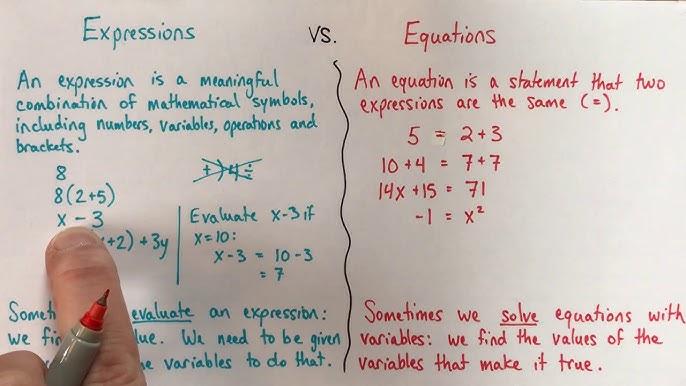 Expressions vs. Equations
An expression is a meaningful
combination of mathematical symbols,
including numbers, variables, operations and
brackets.
8
8(2+5)
x - 3
+2) + 3y
+ ) 4 ÷
Evaluate x-3 if
x=10:
x - 3 = 10 - 3
= 7
evaluate an expression:
we We need to be given
the variables to do that.
An equation is a statement that two
expressions are the same (=).
5 = 2+3
10+4 = 7+7
14x+15 = 71
-1 = x²
Sometimes we solve equations with
variables: we find the values of the
variables that make it true.